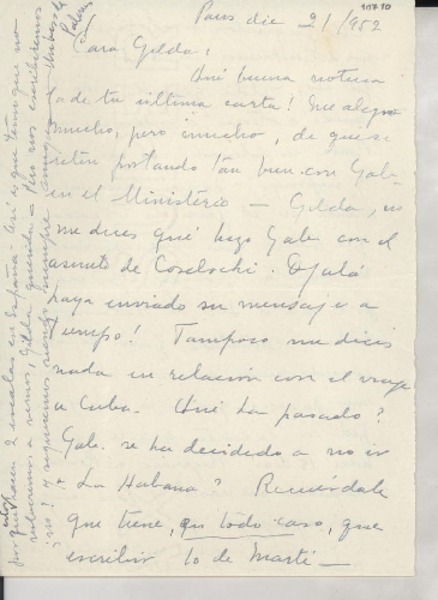 Paris dic 21/952
Cara Gilda:
Qué buena noticia
la de tu última carta! Me alegro
mucho, pero mucho, de que se
estén portando tan bien con Gab.
en el Ministerio — Gilda, no
me dices qué hizo Gab con el
asunto de Coselschi. Ojalá
haya enviado su mensaje a
tiempo! Tampoco me dices
nada en relación con el viaje
a Cuba. Qué ha pasado?
Gab. se ha decidido a no ir
a La Habana? Recuérdale
que tiene, en todo caso, que
escribir lo de Martí —
hacen 2 escalas en España. Así es que temo que no
volvamos a vernos, Gilda querida — Pero nos escribiremos
no? y seguiremos siendo siempre amigas
Un beso de
Palma